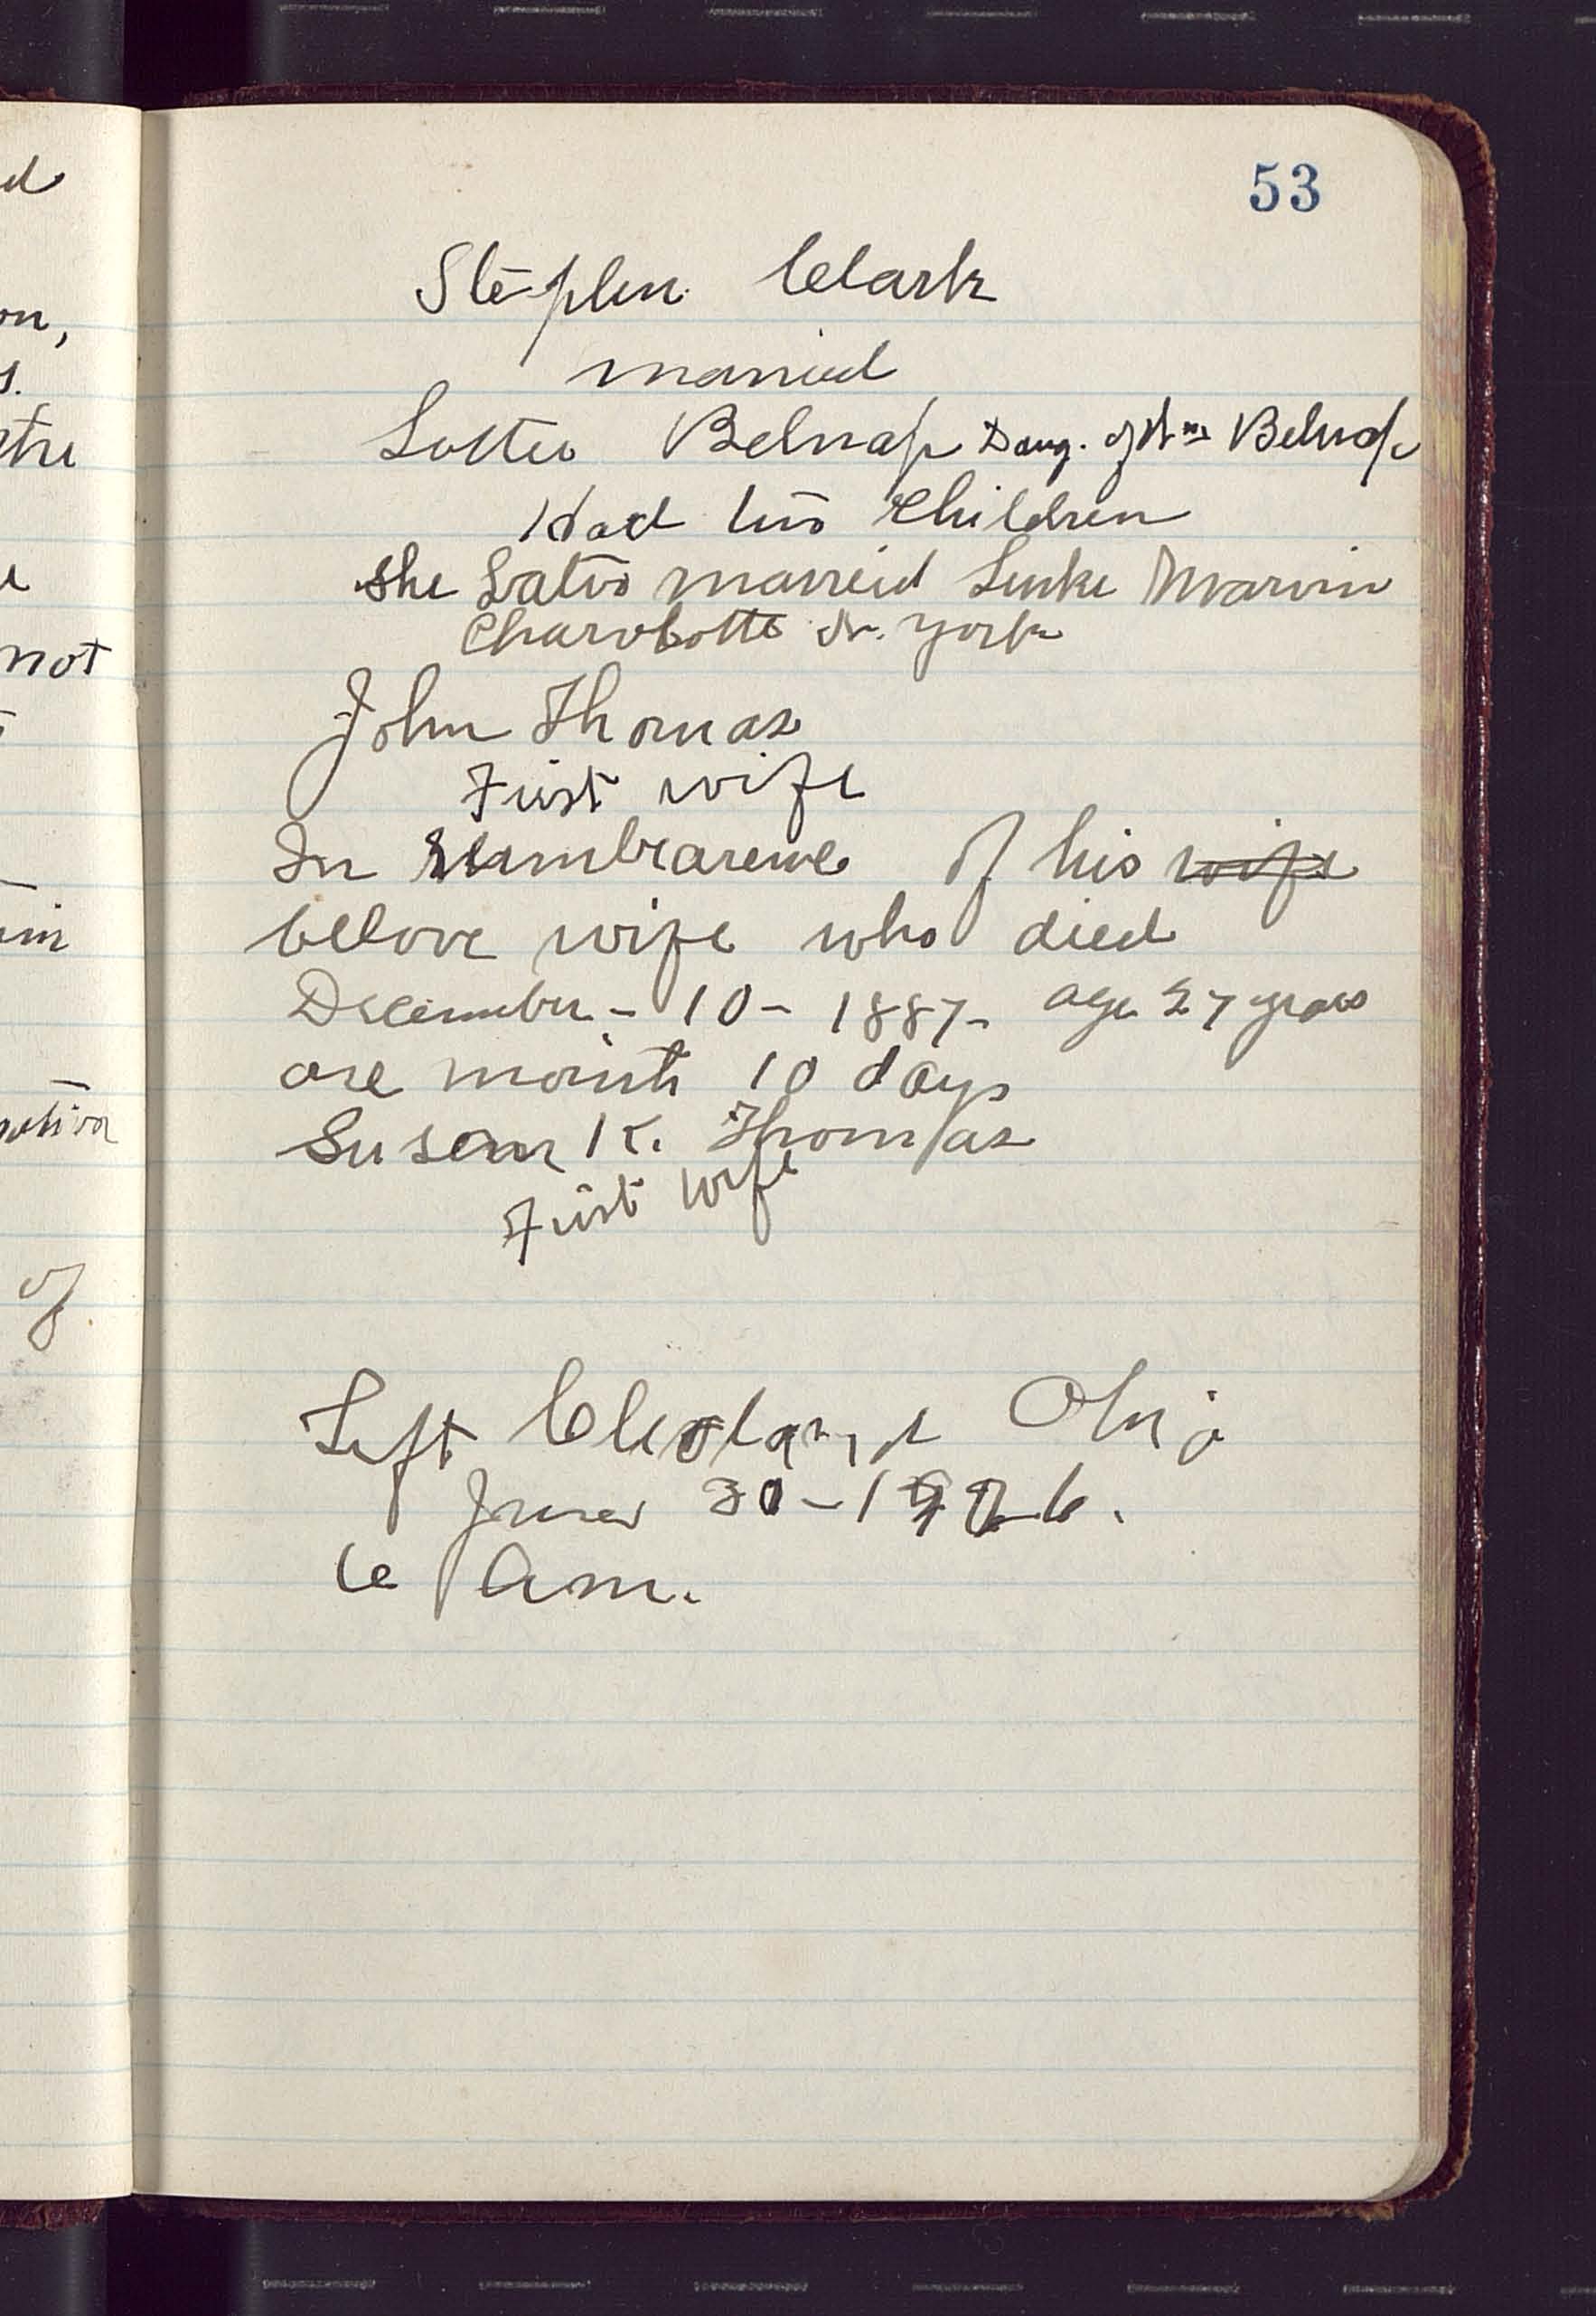 53
Stephen Clark
married
Lottie Belnap Daug. of Wm Belnap
Had two Children
She Later marreid Luke Marvin
Charolotte N. York
John Thomas
First wife
In rembrarence of his wife
belove wife who died
December - 10 - 1887 - age 27 years
one month 10 days
Susan K. Thomas
First wife
Left Cleveland Ohio
June 30 - 1926.
6 Am.
d
on,
s.
not
of